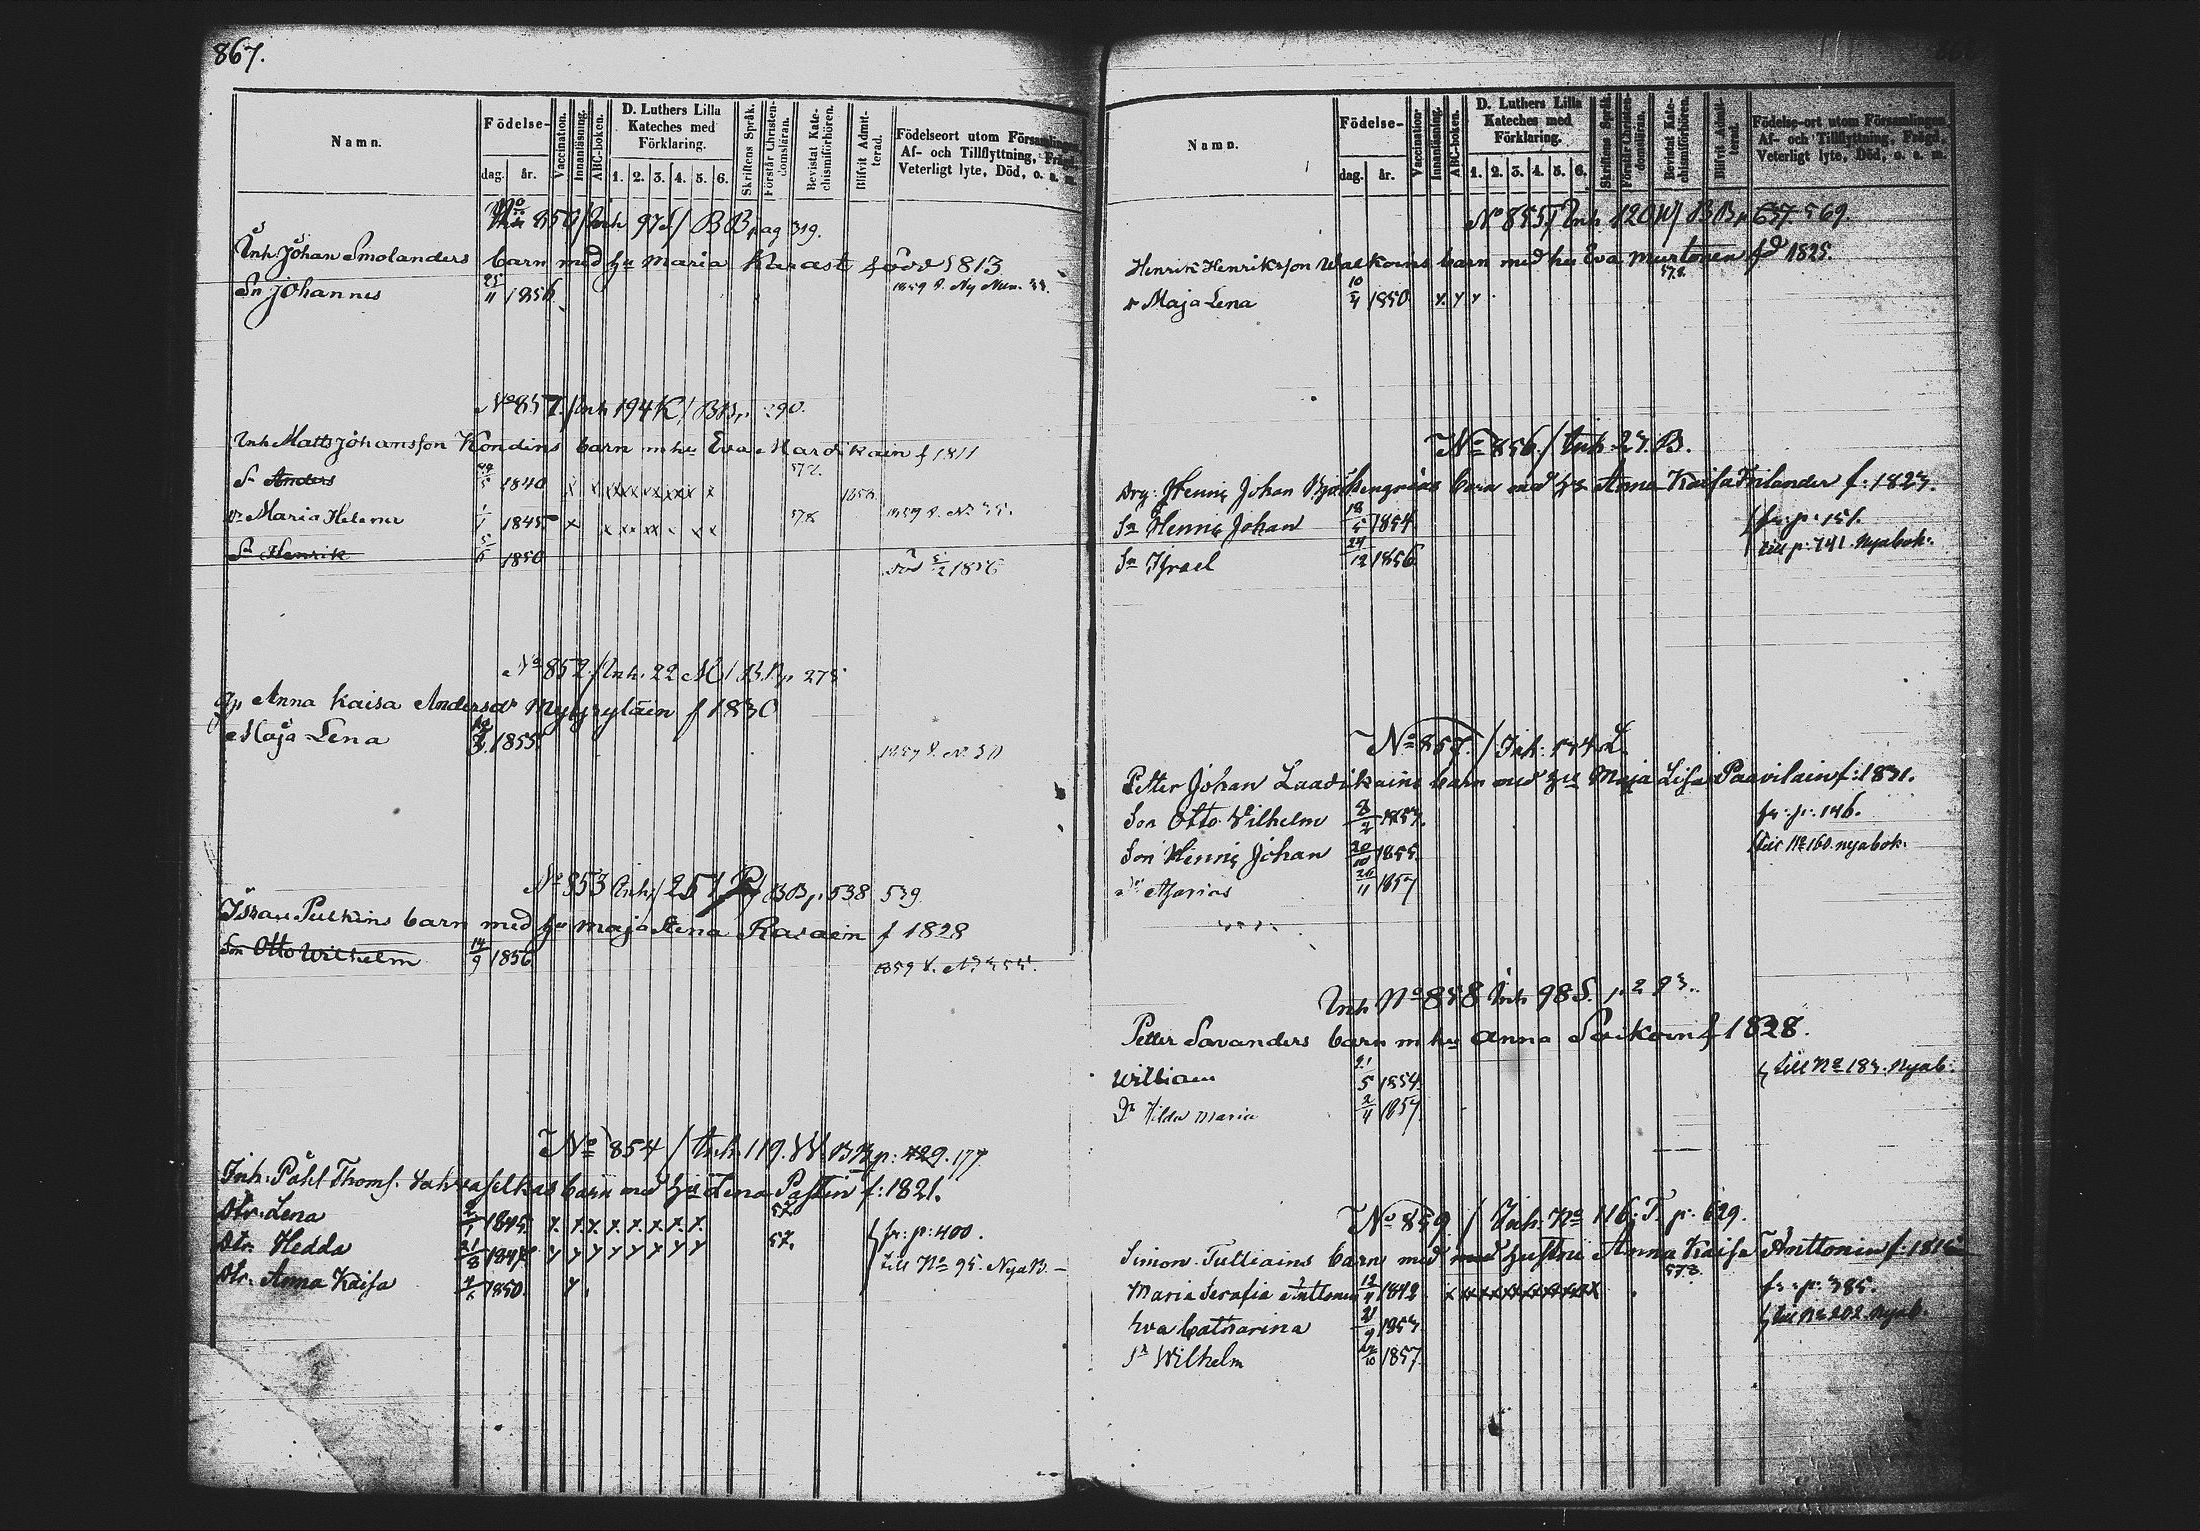 867.
Namn.
Födelse-
dag. år.
Vaccination.
Innanläsning.
ABC-boken.
D. Luthers Lilla Kateches med Förklaring.
1. 2. 3. 4. 5. 6.
Skriftens Språk.
Förstår Christendomsläran.
Bevistat Katechismiförhören.
Blifvit Admitterad.
Födelseort utom Församlingen, Af- och Tillflyttning, Frägd, Veterligt lyte, Död, o. s. m.
No 850/Inh 97 S/ BB pag 319.
Inh: Johan Smolanders barn med hu Maria Karast född 1813
Sn Johannes 25/11 1856 1859 N. Ny Num. 33.
No 851./Inh 194 K/ BB p. 290.
Inh Matts Johansson Kondins barn m hu Eva Mardikain f 1811
Sn Anders 1840 x x x x x x x x 57.
Dr Maria Helena 1/1 1845 x x x x x x x 57.8 1859
Sn Henrik 5/6 1850 Död 5/2 1856
No 852./Inh. 22 M/ B.B p. 275
Anna Kaisa Andersdr f 1830
Maja Lena 1855
No 853 Inh/251 P/ BB p. 538 539
Pulkins barn med hu Maja Lena Rasain f 1828
Son Otto Wilhelm 14/9 1856 1859
No 854 / Inh. 119. W. BB p: 429. 177
Inh: Påhl Thoms. barn med hu Lena Pastin f: 1821.
Dtr. Lena 2/1 1845 x. x x. x. x. x. x. x. 57.
Dtr. Hedda 21/8 1847 x x x x x x x x 57. fr: p: 400.
till No 95. NyaB.
Dtr. Anna Kaisa 1850 x
Namn.
Födelse-
dag. år.
Vaccination.
Innanläsning.
ABC-boken.
D. Luthers Lilla Kateches med Förklaring.
1. 2. 3. 4. 5. 6.
Skriftens Språk.
Förstår Christendomsläran.
Bevistat Katechismiförhören.
Blifvit Admitterad.
Födelse-ort utom Församlingen, Af- och Tillflyttning, Frägd, Veterligt lyte, Död, o. s. m.
No 855/Inh. 120 W/ BB p 637 569.
Henrik Henriksson Walkoins barn med hu Eva Murtonen fd 1825.
Maja Lena 10/4 1850 x. x x 57.8.
No 856./Inh. 27. B.
Drg: Henric Johan barn med hu Anna Kaisa Filander f: 1823.
Sn Henric Johan 18/5 1854 fr: p: 151.
Sn Israel 24/12 1856 till p: 741. Nyabok:
No 857. / Inh: L.
Petter Johan Laadikains barn med hu Maja Lisa Paavilain f: 1831.
Son Otto Wilhelm fr: p: 146.
Son Henric Johan 20/10 1855. till No 160 nyabok.
26/11 1857
Inh No 858 Inh 98 S. p 293.
Petter Savanders barn m hu Anna f 1828.
William 5 1854. till No 183. Nyab:
Dr Hilda Maria 2/4 1857
No 859. / Inh. No 116: T. p: 629.
Simon Tulliains barn med med hustru Anna Kaisa Anttonin f: 1815
Maria Serafia Anttonen 1842. x x x x x x x x x 57.8. fr: p: 385.
Eva Catharina 21/9 1853 till No 202. Nyab.
Sn Wilhelm 1857.